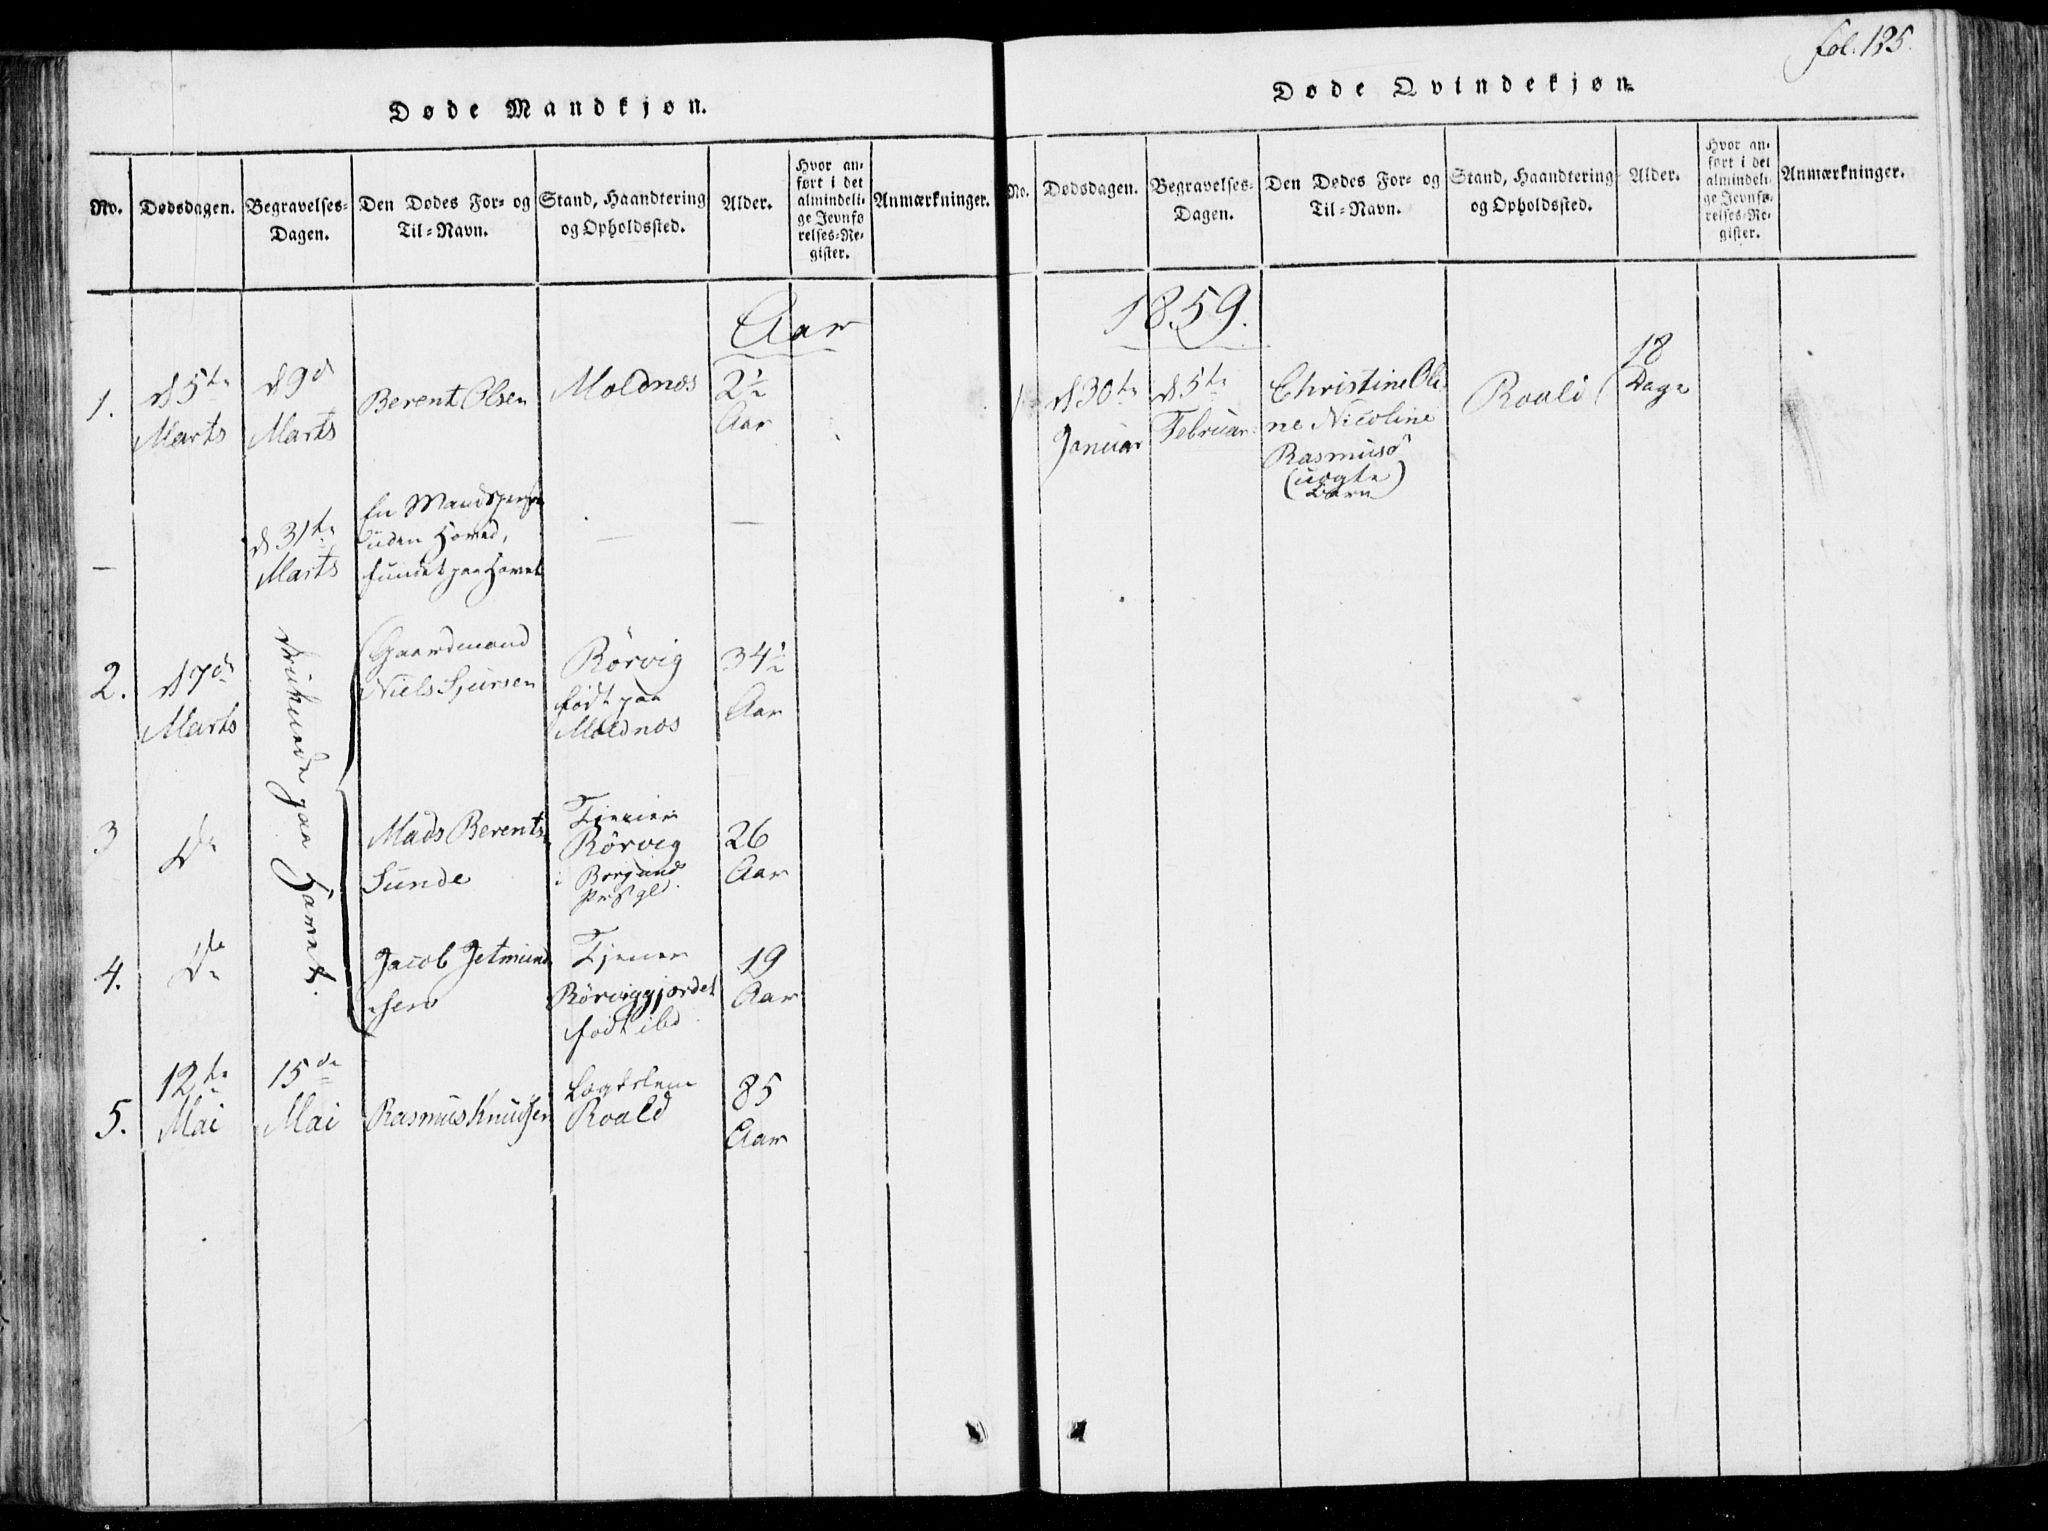 fol. 125.
Døde Mandkjøn.
No.
Dødsdagen.
Begravelses-
Dagen.
Den Dødes For- og
Til-Navn.
Stand, Haandtering
og Opholdssted.
Alder.
Hvor an-
ført i det
almindeli-
ge Jevnfø
relses-Re-
gister.
Anmærkninger.
Aar
1.
d 5te
Marts
d 9de
Marts
Berent Olsen
Moldnæs
2½
Aar
—
d 31te
Marts
En Mandsperson
uden Hoved,
fundet paa Havet
—
—
2.
d 7de
Marts
Druknede paa Havet.
Gaardmand
Niels Sjursen
Rörvig
født paa
Moldnæs
34½
Aar
3
Do
Mads Berents
Sunde
Tjener
Rörvig
i Borgund
Prstgld.
26
Aar
4.
Do
Jacob Jetmund
sen
Tjener
Rörviggjærdet
født ibd.
19
Aar
5.
12te
Mai
15de
Mai
Rasmus Knudsen
Lægdslem
Roald
85
Aar
Døde Qvindekjøn.
No.
Dødsdagen.
Begravelses-
Dagen.
Den Dødes For- og
Til-Navn.
Stand, Haandtering
og Opholdssted.
Alder.
Hvor an-
ført i det
almindeli-
ge Jevnfø-
relses-Re-
gister.
Anmærkninger.
1859.
1
d 30te
Januar
d 5te
Februar
Christine Oli
ne Nicoline
Rasmusd
(uægte
Barn)
Roald
18
Dage